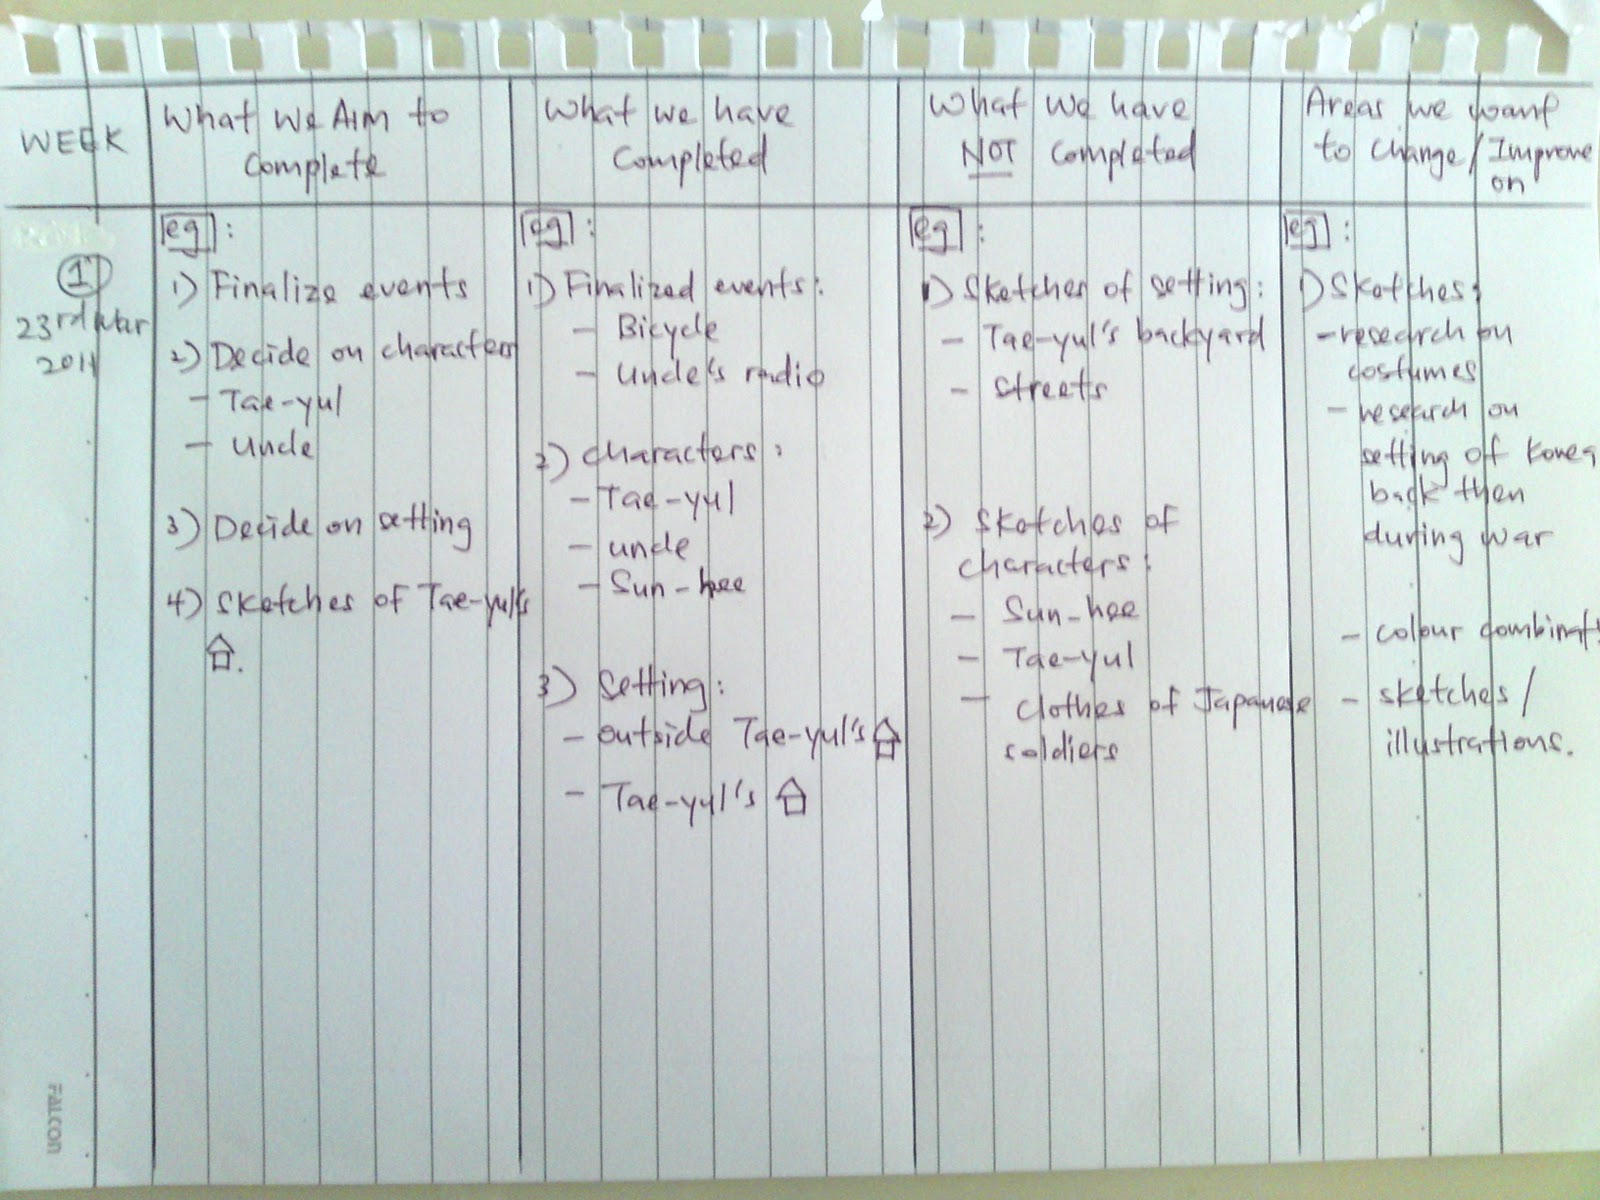 WEEK
What We Aim to
Complete
What we have
Completed
What We have
NOT Completed
Areas we want
to change/Improve
on
1
23rd Mar
2011
eg:
1) Finalize events
2) Decide on characters
- Tae-yul
- Uncle
3) Decide on setting
4) Sketches of Tae-yul's
eg:
1) Finalized events:
- Bicycle
- Uncle's radio
2) characters:
- Tae-yul
- uncle
- Sun-hee
3) Setting:
- outside Tae-yul's
- Tae-yul's
eg:
1) Sketches of setting:
- Tae-yul's backyard
- streets
2) Sketches of
characters:
- Sun-hee
- Tae-yul
- clothes of Japanese
soldiers
eg:
1) Sketches:
- research on
costumes
- research on
setting of Korea
back then
during war
- colour
- sketches/
illustrations.
FALCON